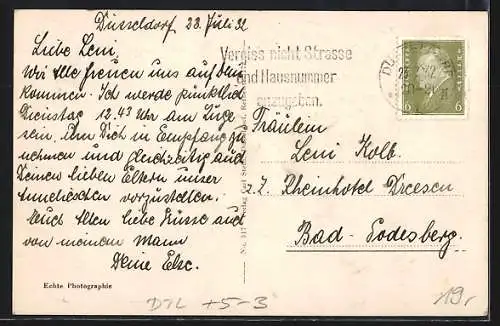 Düsseldorf 23. Juli 32
Liebe Leni,
Wir Alle freuen uns auf Dein
Kommen. Ich werde pünktlich
Dienstag 12.43 Uhr am Zuge
sein, um Dich in Empfang zu
nehmen und gleichzeitig auch
Deinen lieben Eltern unser
vorzustellen.
Euch Allen liebe Küsse auch
von meinem Mann
Deine Else.
Echte Photographie
Vergiss nicht Strasse
und Hausnummer
anzugeben.
6 6
Fräulein
Leni Kolb.
z. Z. Rheinhotel Dreesen
Bad-Godesberg.
19,-